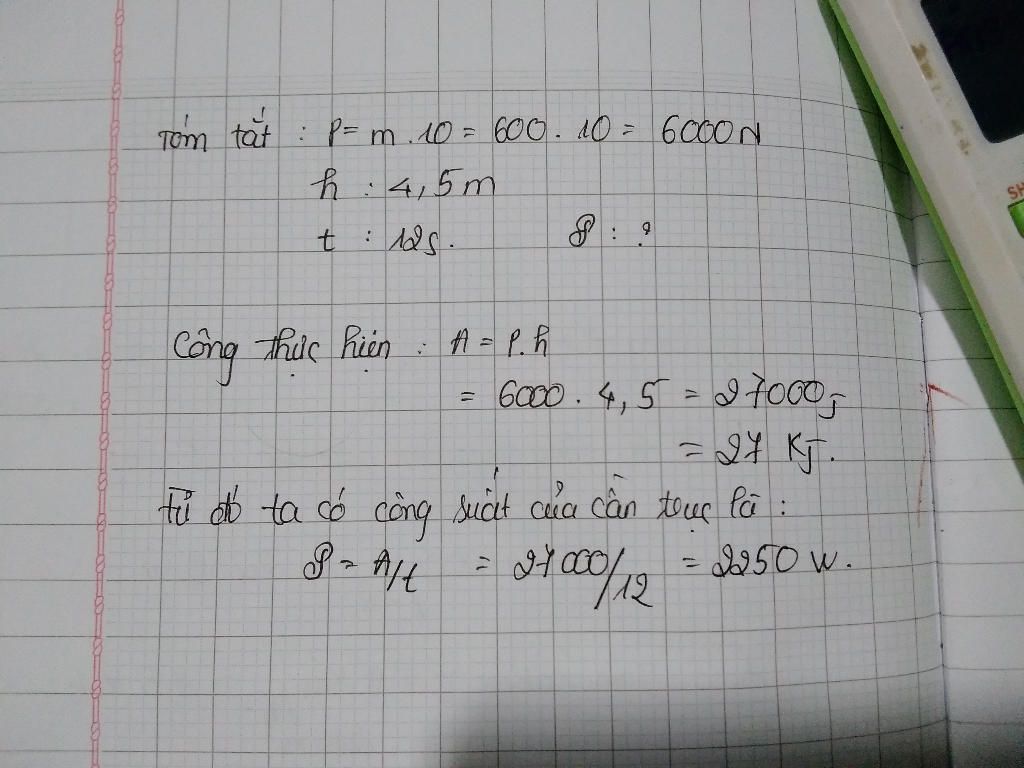 Tóm tắt : P = m . 10 = 600 . 10 = 6000 N
h : 4,5 m
t : 12s. 𝒫 : ?
Công thực hiện : A = P. h
= 6000 . 4,5 = 27000 J
= 27 KJ.
Từ đó ta có công suất của cần trục là :
𝒫 = A/t = 27000/12 = 2250 W.
SH